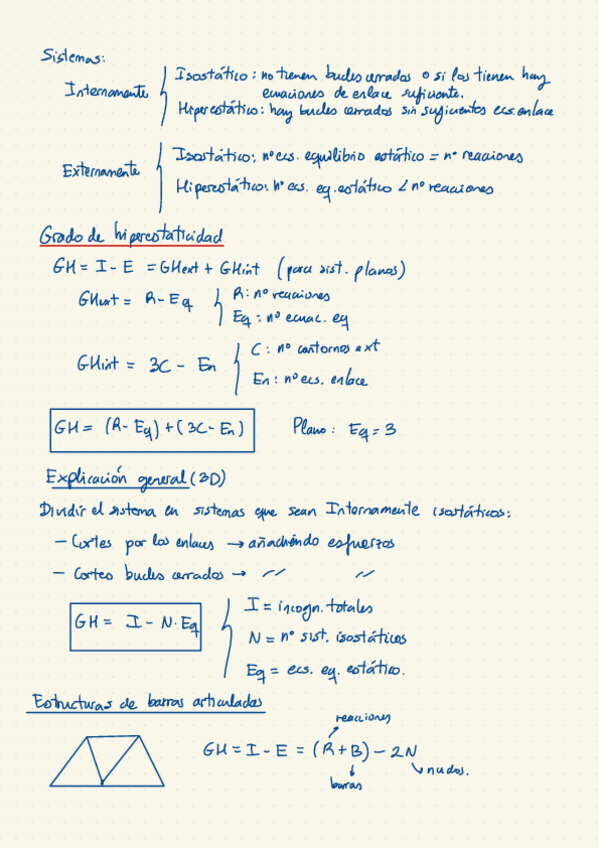 Sistemas:
Internamente
Isostático: no tienen bucles cerrados o si los tienen hay
ecuaciones de enlace suficiente.
Hiperestático: hay bucles cerrados sin suficientes ecs. enlace
Externamente
Isostático: nº ecs. equilibrio estático = nº reacciones
Hiperestático: nº ecs. eq. estático < nº reacciones
Grado de hiperestaticidad
GH = I - E = GHext + GHint (para sist. planos)
GHext = R - Eq
R: nº reacciones
Eq: nº ecuac. eq
GHint = 3C - En
C: nº contornos ext
En: nº ecs. enlace
GH = (R - Eq) + (3C - En)
Plano: Eq = 3
Explicación general (3D)
Dividir el sistema en sistemas que sean Internamente isostáticos:
- Cortes por los enlaces → añadiendo esfuerzos
- Cortes bucles cerrados → // //
GH = I - N·Eq
I = incogn. totales
N = nº sist. isostáticos
Eq = ecs. eq. estático.
Estructuras de barras articuladas
reacciones
GH = I - E = (R + B) - 2N
nudos.
barras